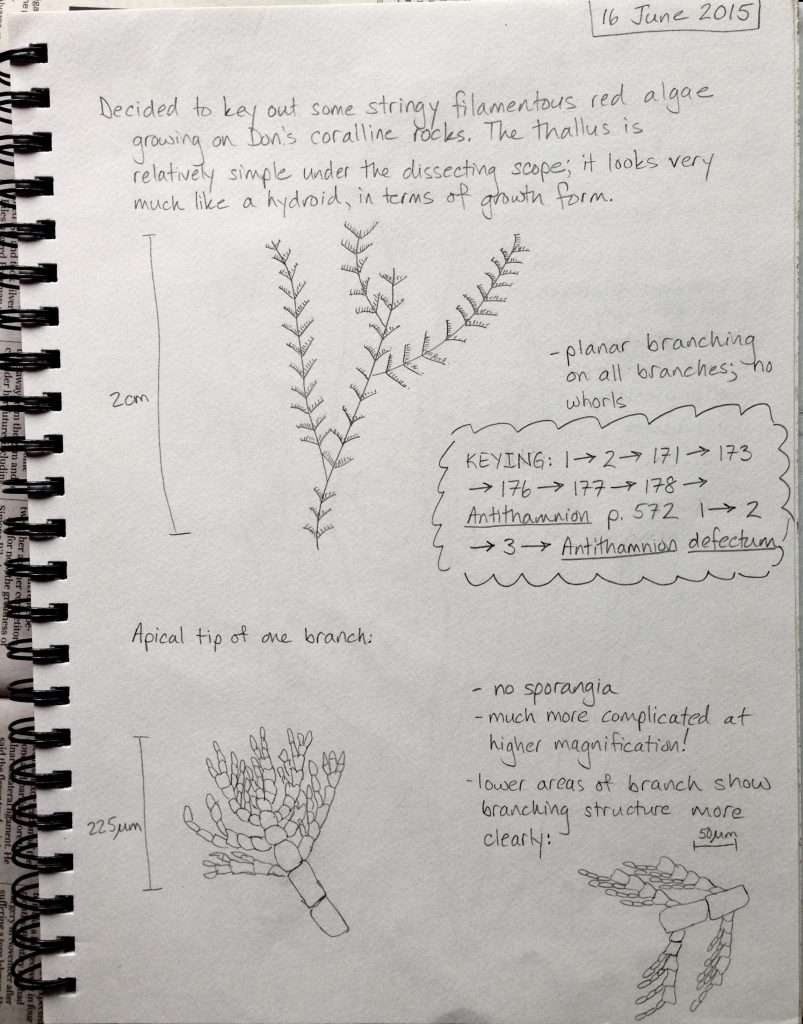 16 June 2015
Decided to key out some stringy filamentous red algae
growing on Don's coralline rocks. The thallus is
relatively simple under the dissecting scope; it looks very
much like a hydroid, in terms of growth form.
2cm
- planar branching
on all branches; no
whorls
KEYING: 1 → 2 → 171 → 173
→ 176 → 177 → 178 →
Antithamnion p. 572 1 → 2
→ 3 → Antithamnion defectum
Apical tip of one branch:
- no sporangia
- much more complicated at
higher magnification!
- lower areas of branch show
branching structure more
clearly:
225μm
50μm